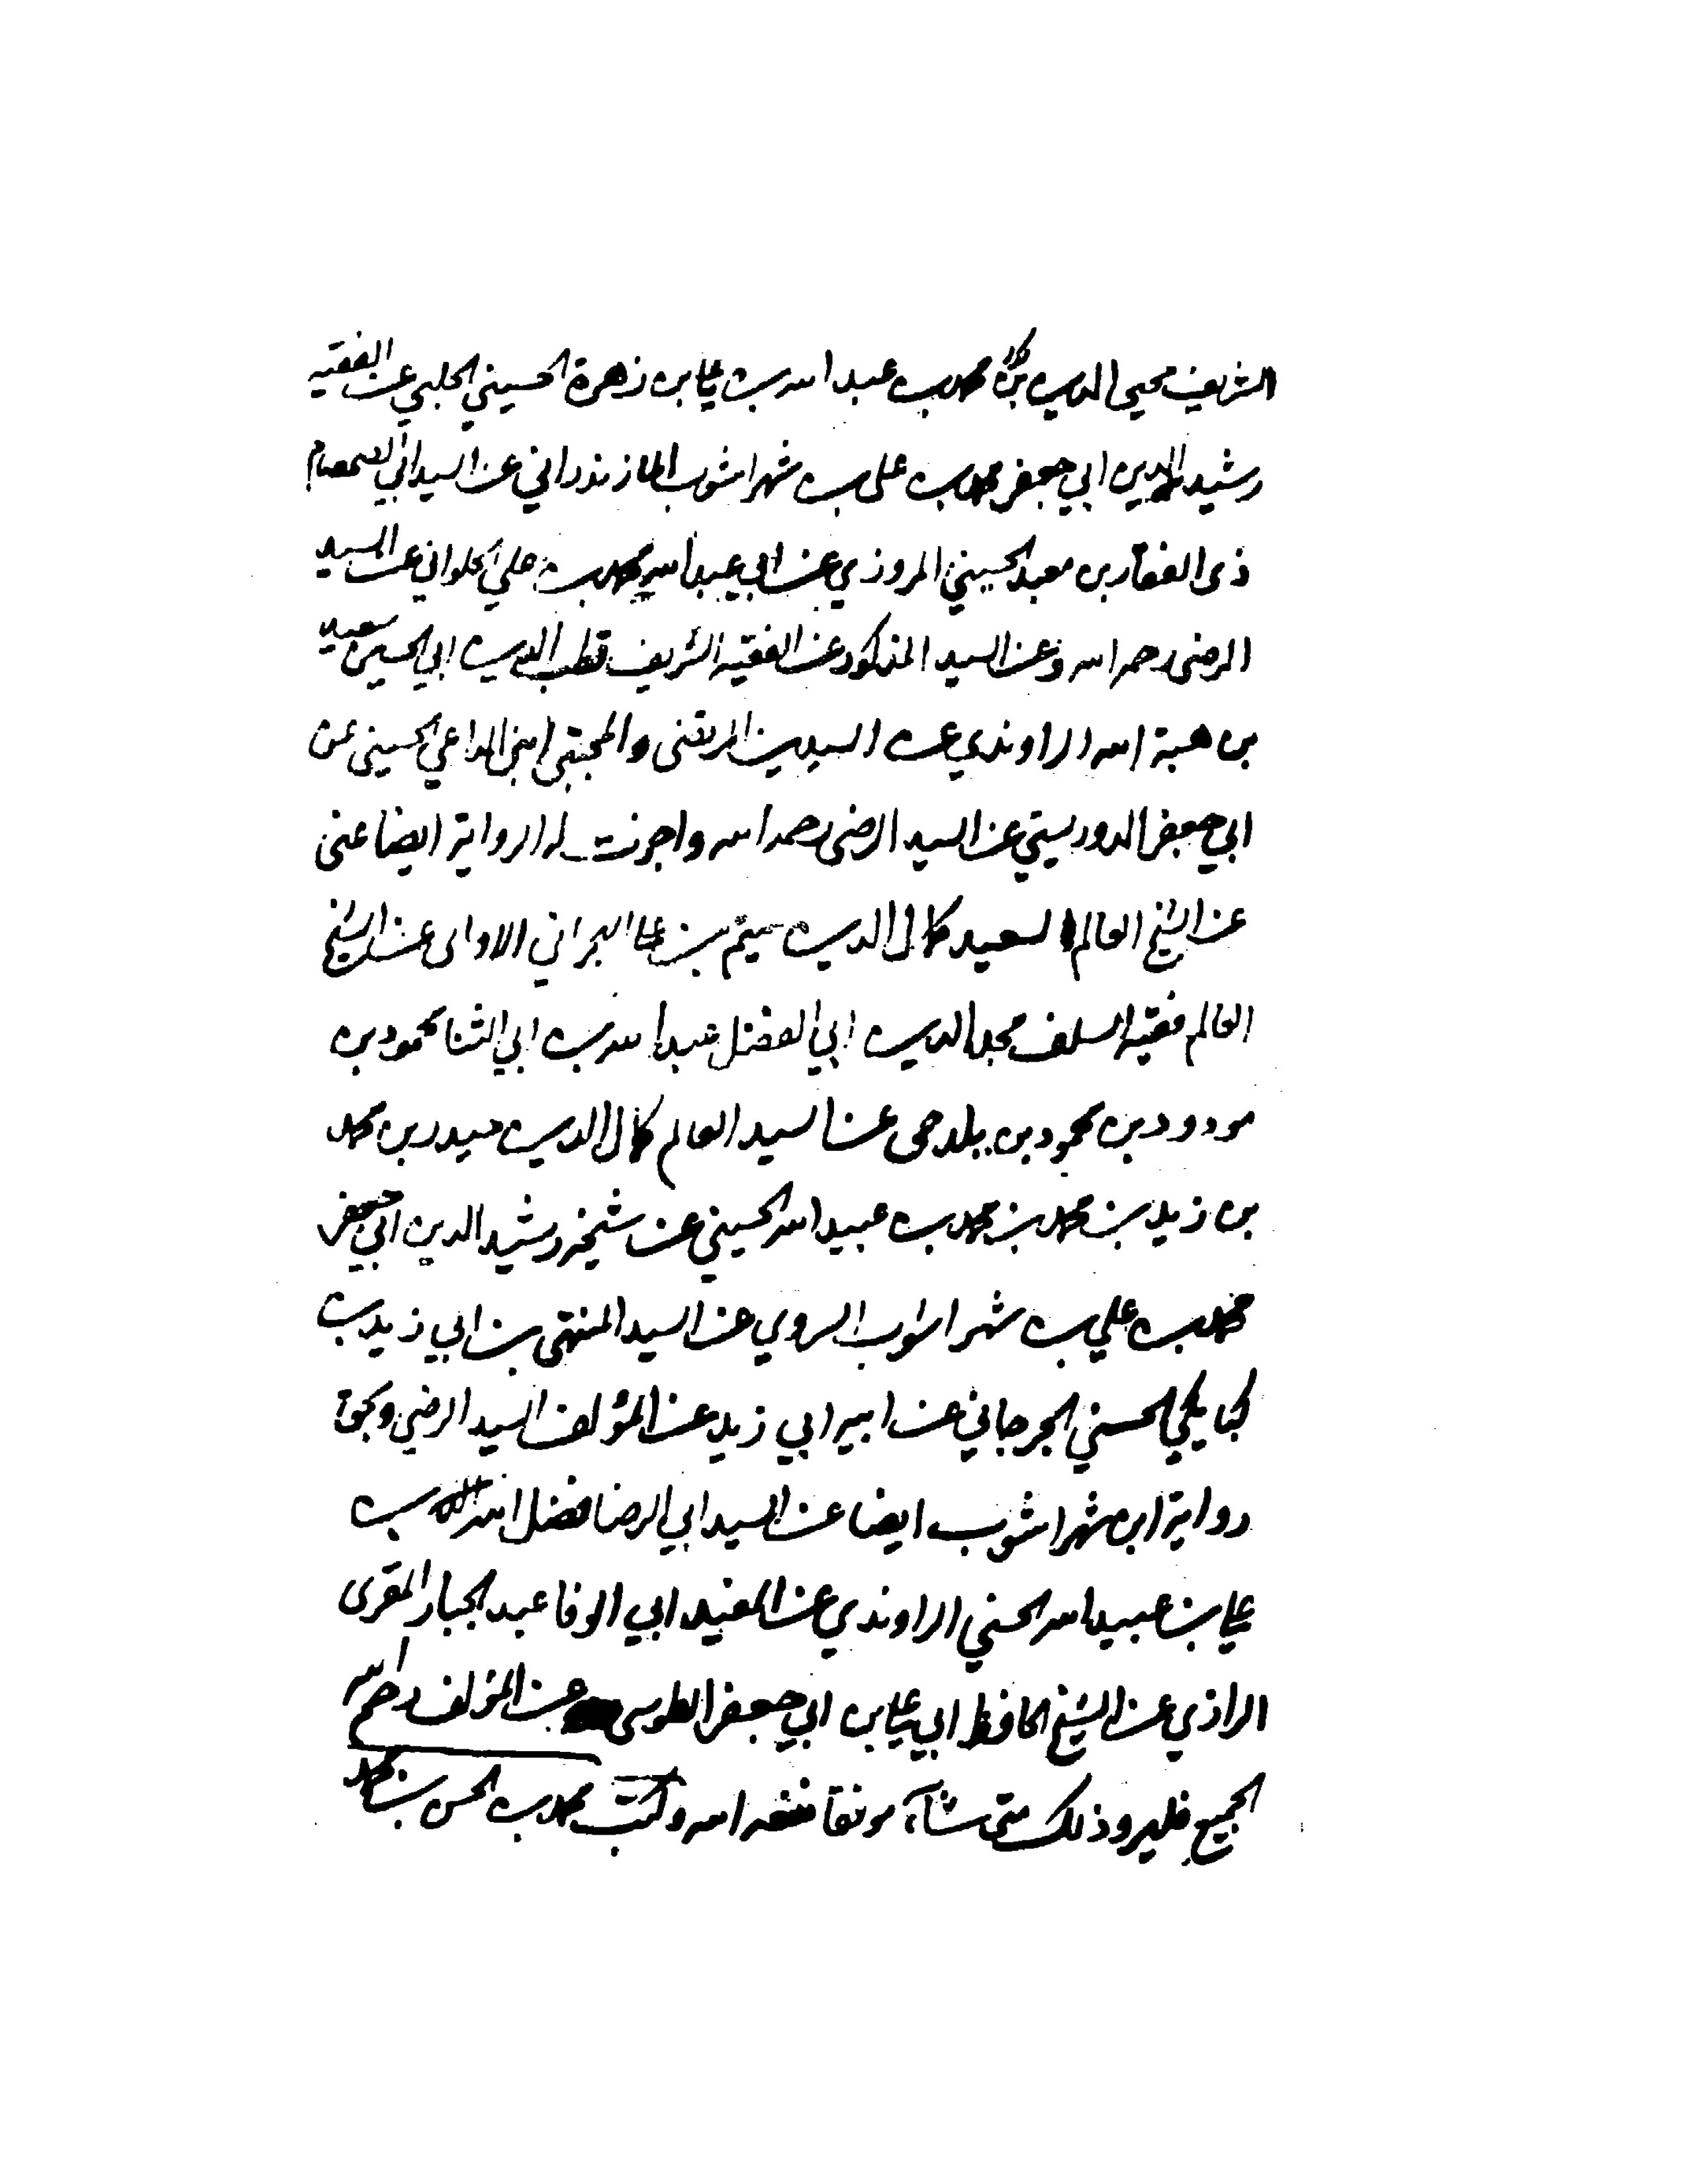 الشريف محيى الدين محمد بن عبد الله بن علي بن زهرة الحسيني الحلبي عن الفقيه
رشيد الدين ابي جعفر محمد بن علي بن شهراشوب المازندراني عن السيد ابي الصمصام
ذى الفقار بن معبد الحسيني المروزي عن ابي عبد الله محمد بن علي الحلواني عن السيد
الرضى رحمه الله وعن السيد المذكور عن الفقيه الشريف قطب الدين ابي الحسين سعيد
بن هبة الله الراوندي عن السيدين المرتضى والمجتبى ابنى الداعي الحسينى عن
ابي جعفر الدوريستي عن السيد الرضى رحمه الله واجزت له الرواية ايضا عنى
عن الشيخ العالم السعيد كمال الدين ميثم بن علي البحراني الاوالى عن الشيخ
العالم فقيه السلف مجد الدين ابي الفضل عبد الله بن ابي الثنا محمود بن
مودود بن محمود بن بلدجى عن السيد العالم كمال الدين حيدر بن محمد
بن زيد بن محمد بن محمد بن عبيد الله الحسيني عن شيخه رشيد الدين ابي جعفر
محمد بن علي بن شهراشوب السروي عن السيد المنتهى بن ابي زيد بن
كيابكي الحسني الجرجاني عن ابيه ابي زيد عن المؤلف السيد الرضي وبحق
رواية ابن شهراشوب ايضا عن السيد ابي الرضا فضل الله بن
علي بن عبيد الله الحسني الراوندي عن المفيد ابي الوفا عبد الجبار المقرى
الرازي عن الشيخ الحافظ ابي علي بن ابي جعفر الطوسى عن المؤلف رحم الله
الجميع فليرو ذلك متى شاء موفقا نفعه الله وكتب محمد بن الحسن بن محمد